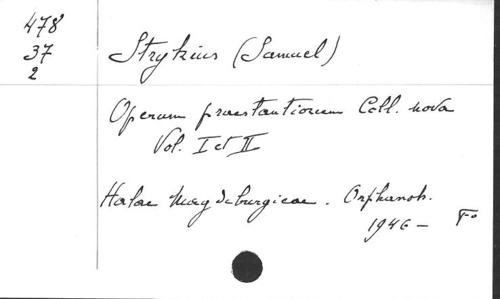 478
37
2
Strykius (Samuel)
Operum praestantiorum Coll. nova
Vol. I et II
Halae Magdeburgicae. Orphanoh.
1946 - Fº